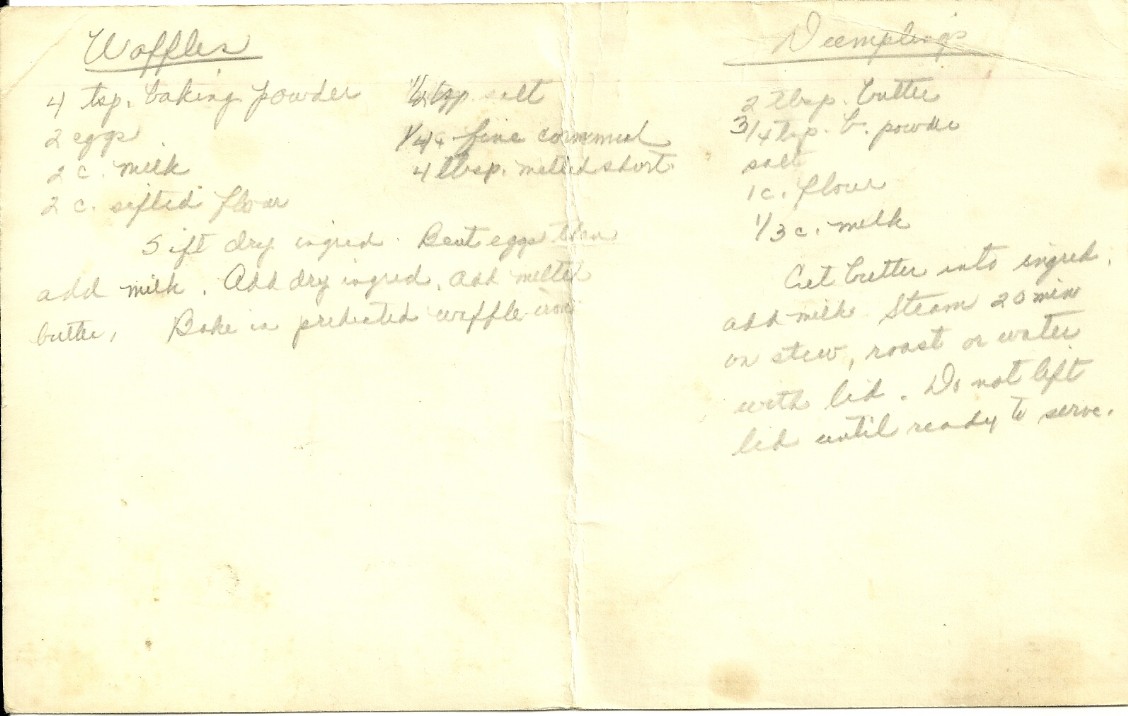 Waffles
4 tsp. baking powder
2 eggs
2 c. milk
2 c. sifted flour
1/2 tsp salt
1/4 c fine cornmeal
4 tbsp. melted short
Sift dry ingred. Beat eggs then
add milk. Add dry ingred, add melted
butter, Bake in preheated waffle iron
Dumplings
2 tbsp. butter
3/4 tsp. b. powder
salt
1 c. flour
1/3 c. milk
Cut butter into ingred,
add milk. Steam 20 min
on stew, roast or water
with lid. Do not lift
lid until ready to serve.